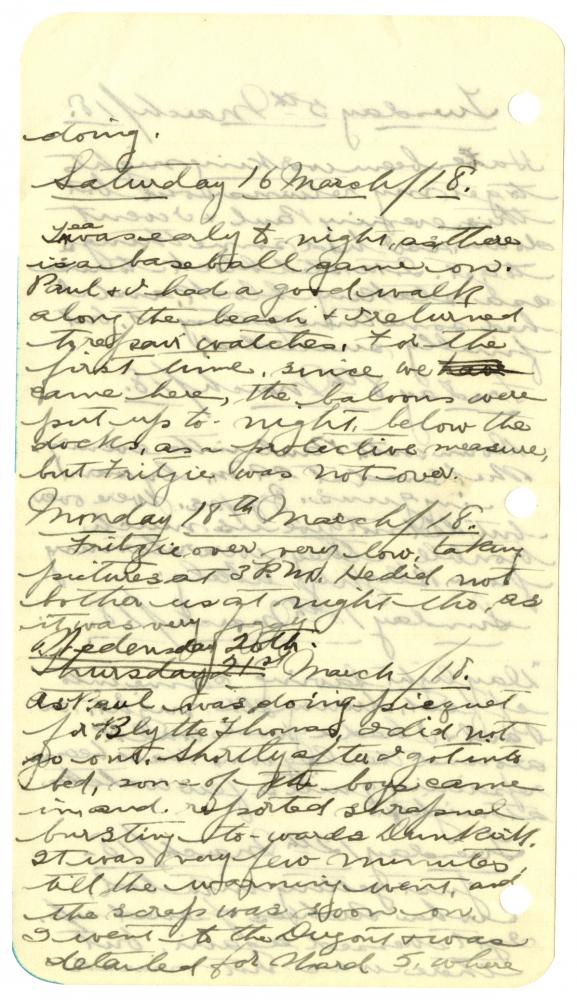 doing.
Saturday 16 March/18.
Tea was early to night, as there
is a baseball game on.
Paul & I had a good walk
along the beach & returned
to repair watches. For the
first time, since we have
came here, the baloons were
put up to-night, below the
docks, as a protective measure,
but Fritzie was not over.
Monday 18th March/18.
Fritzie over very low, taking
pictures at 3 P.M. He did not
bother us at night tho, as
it was very foggy
Wedensday 20th.
Thursday 21st March/18.
As Paul was doing picquet
for Blythe Thomas, I did not
go out. Shortly after I got into
bed, some of the boys came
in and reported shrapnel
bursting to-wards Dunkirk.
It was very few minutes
till the warning went, and
the scrap was soon on.
I went to the Dugout & was
detailed for Ward 5, where